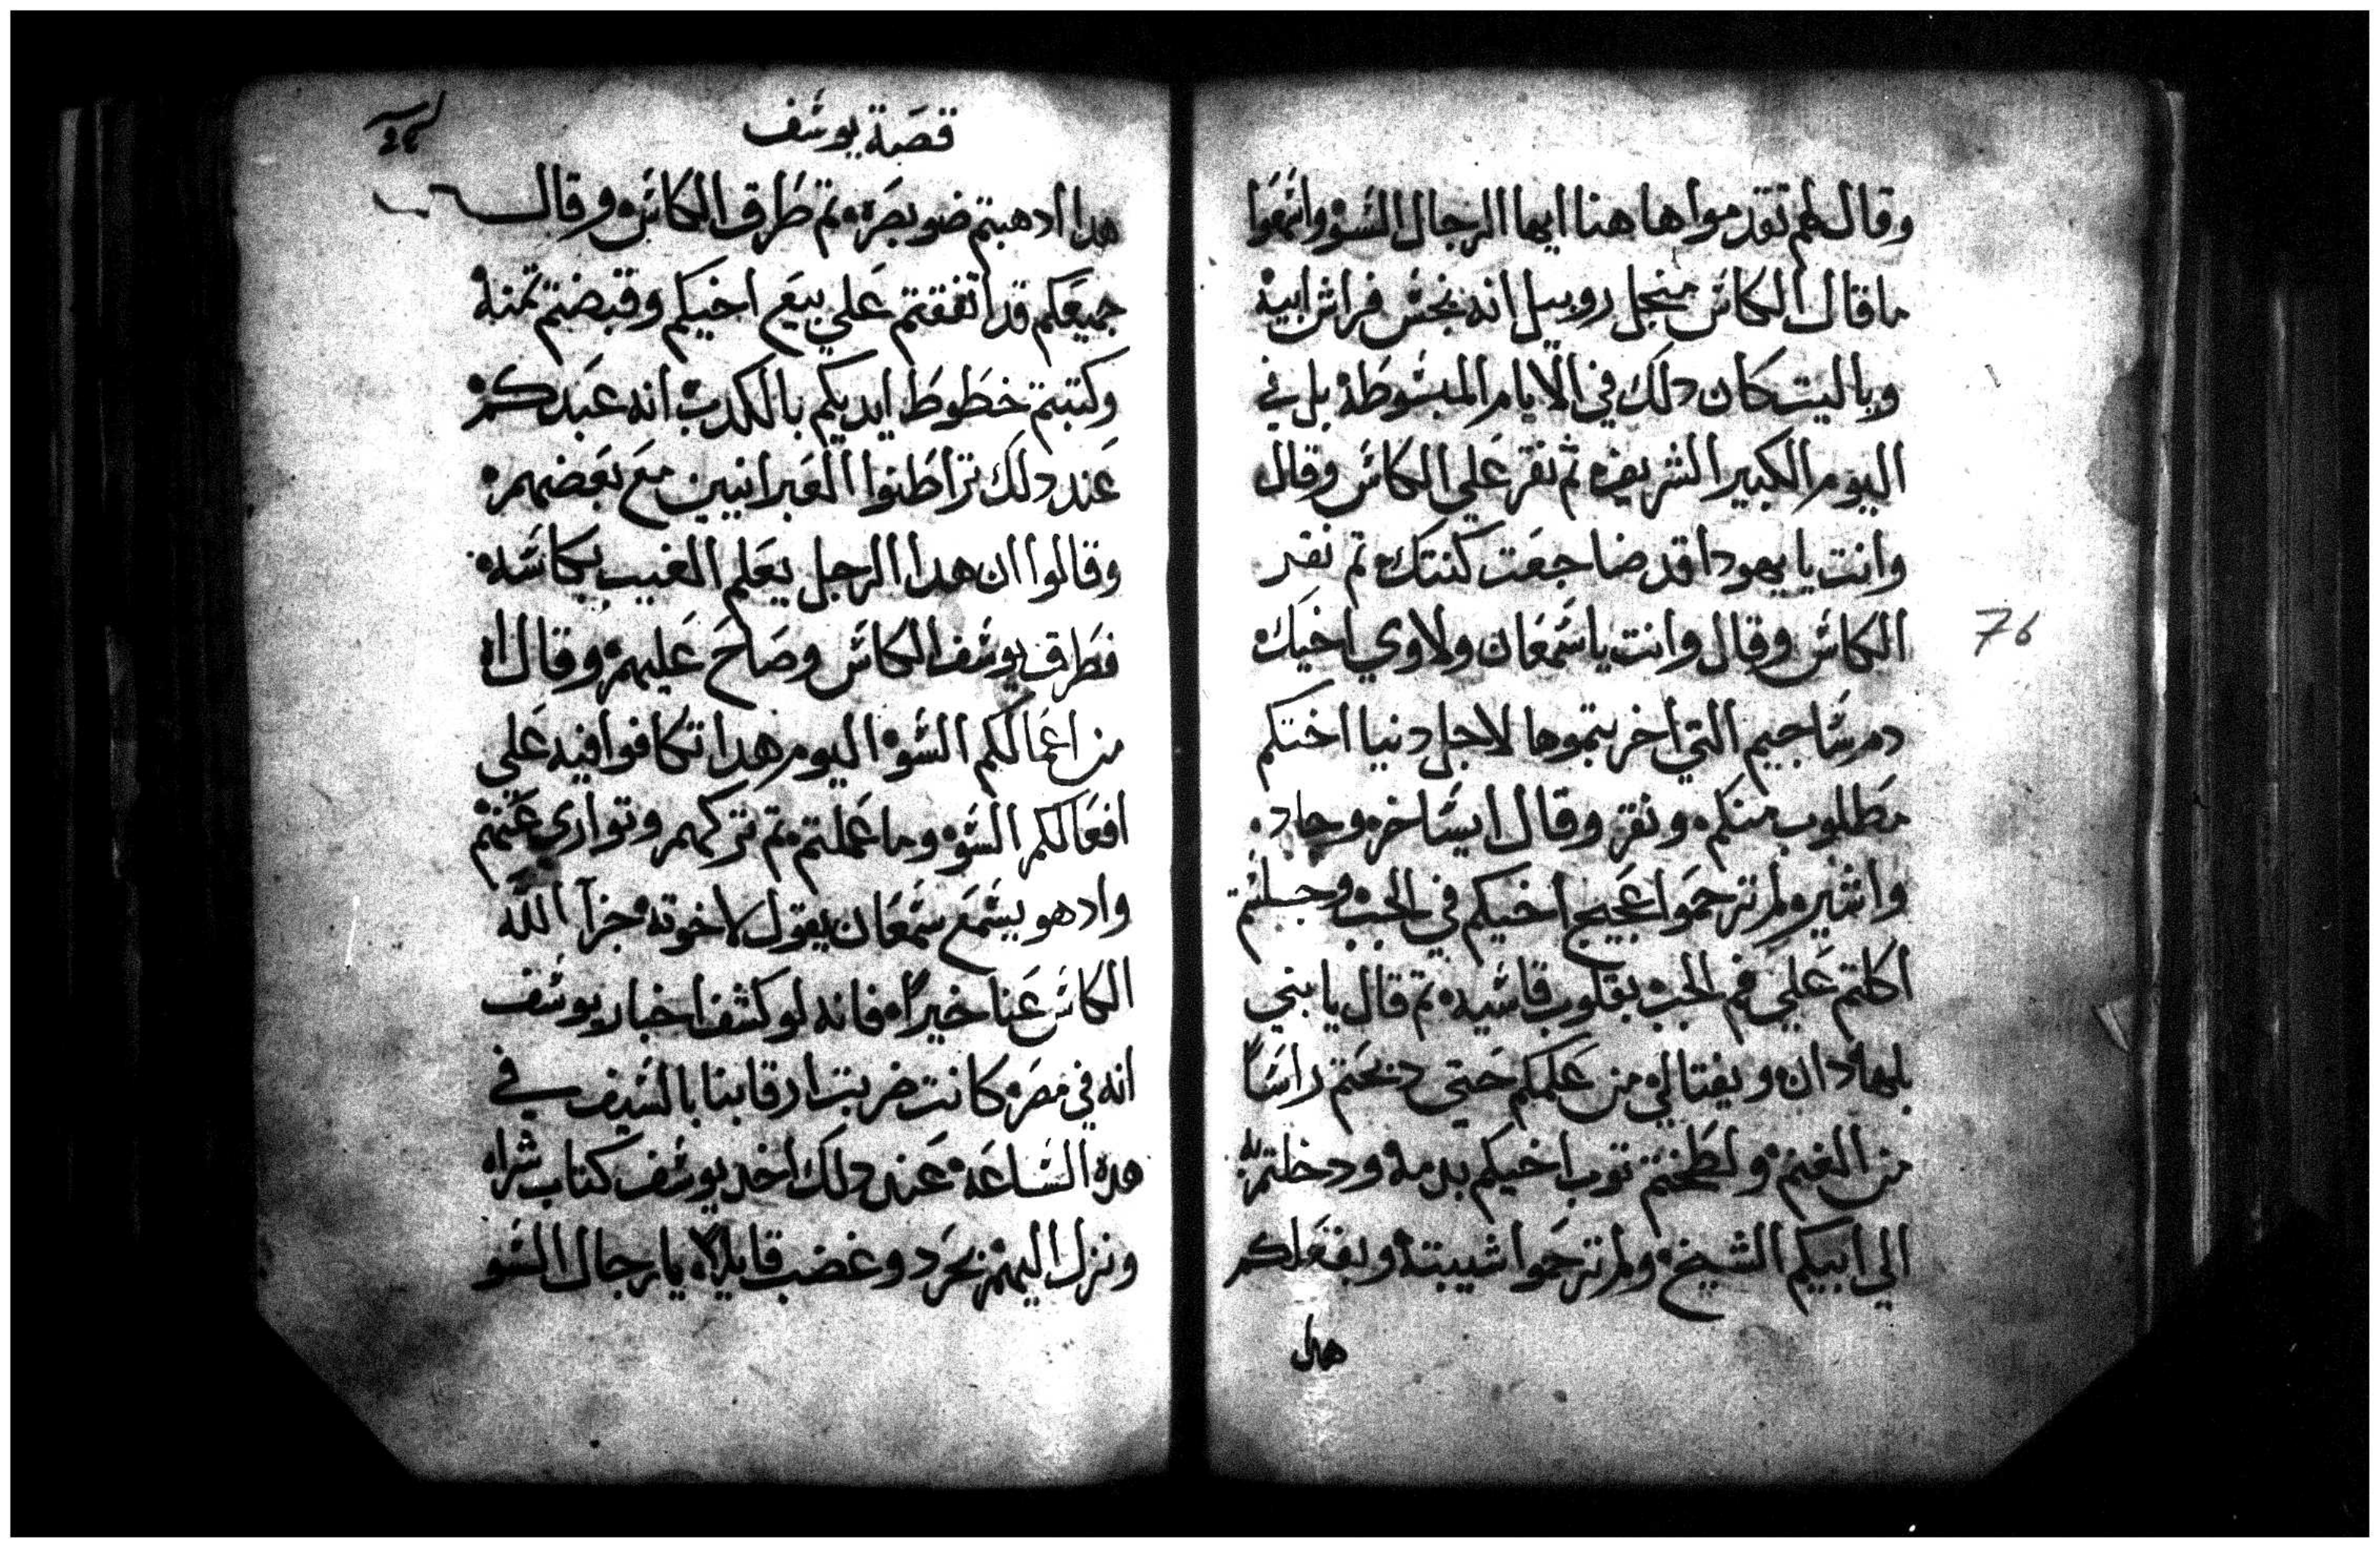 وقال لهم تقدموا هاهنا ايها الرجال السوء واسمعوا
ما قال الكاس منجل روبيل انه نجس فراش ابيه
وياليت كان دلك في الايام المبسوطه بل في
اليوم الكبير الشريف ثم نقر علي الكاس وقال
وانت يا يهودا قد ضاجعت كنتك تم نقر
الكاس وقال وانت يا سمعان ولاوي اخيك
دم ساجيم التي اخربتموها لاجل دنيا اختكم
مطلوب منكم ونقر وقال ايساخر وجاد
واشير لم ترحموا عجيج اخيكم في الجب وجلستم
اكلتم علي فم الجب بقلوب قاسيه تم قال يا بني
بلها دان ويفتالي من علمكم حتي دبحتم راسا
من الغنم ولطختم توب اخيكم بدمه ودخلتم به
الي ابيكم الشيخ ولم ترحموا شيبته وبفعلكم
هدا
76
قصة يوسف
هدا ادهبتم ضو بصره تم طرق الكاس وقال
جميعكم قد اتفقتم علي بيع اخيكم وقبضتم تمنه
وكتبتم خطوط ايديكم بالكدب انه عبدكم
عند دلك تراطنوا العبرانيين مع بعضهم
وقالوا ان هدا الرجل يعلم الغيب بكاسه
فطرق يوسف الكاس وصاح عليهم وقال اه
من اعمالكم السوء اليوم هدا تكافوا فيه علي
افعالكم السوء وما عملتم تم تركهم وتواري عنهم
واد هو يسمع سمعان يقول لاخوته جزآ الله
الكاس عنا خيراً فانه لو كشف اخبار يوسف
انه في مصر كانت ضربت ارقابنا بالسيف في
هده الساعه عند دلك اخد يوسف كتاب شراه
ونزل اليهم بحرد وغضب قايلاً يا رجال السو